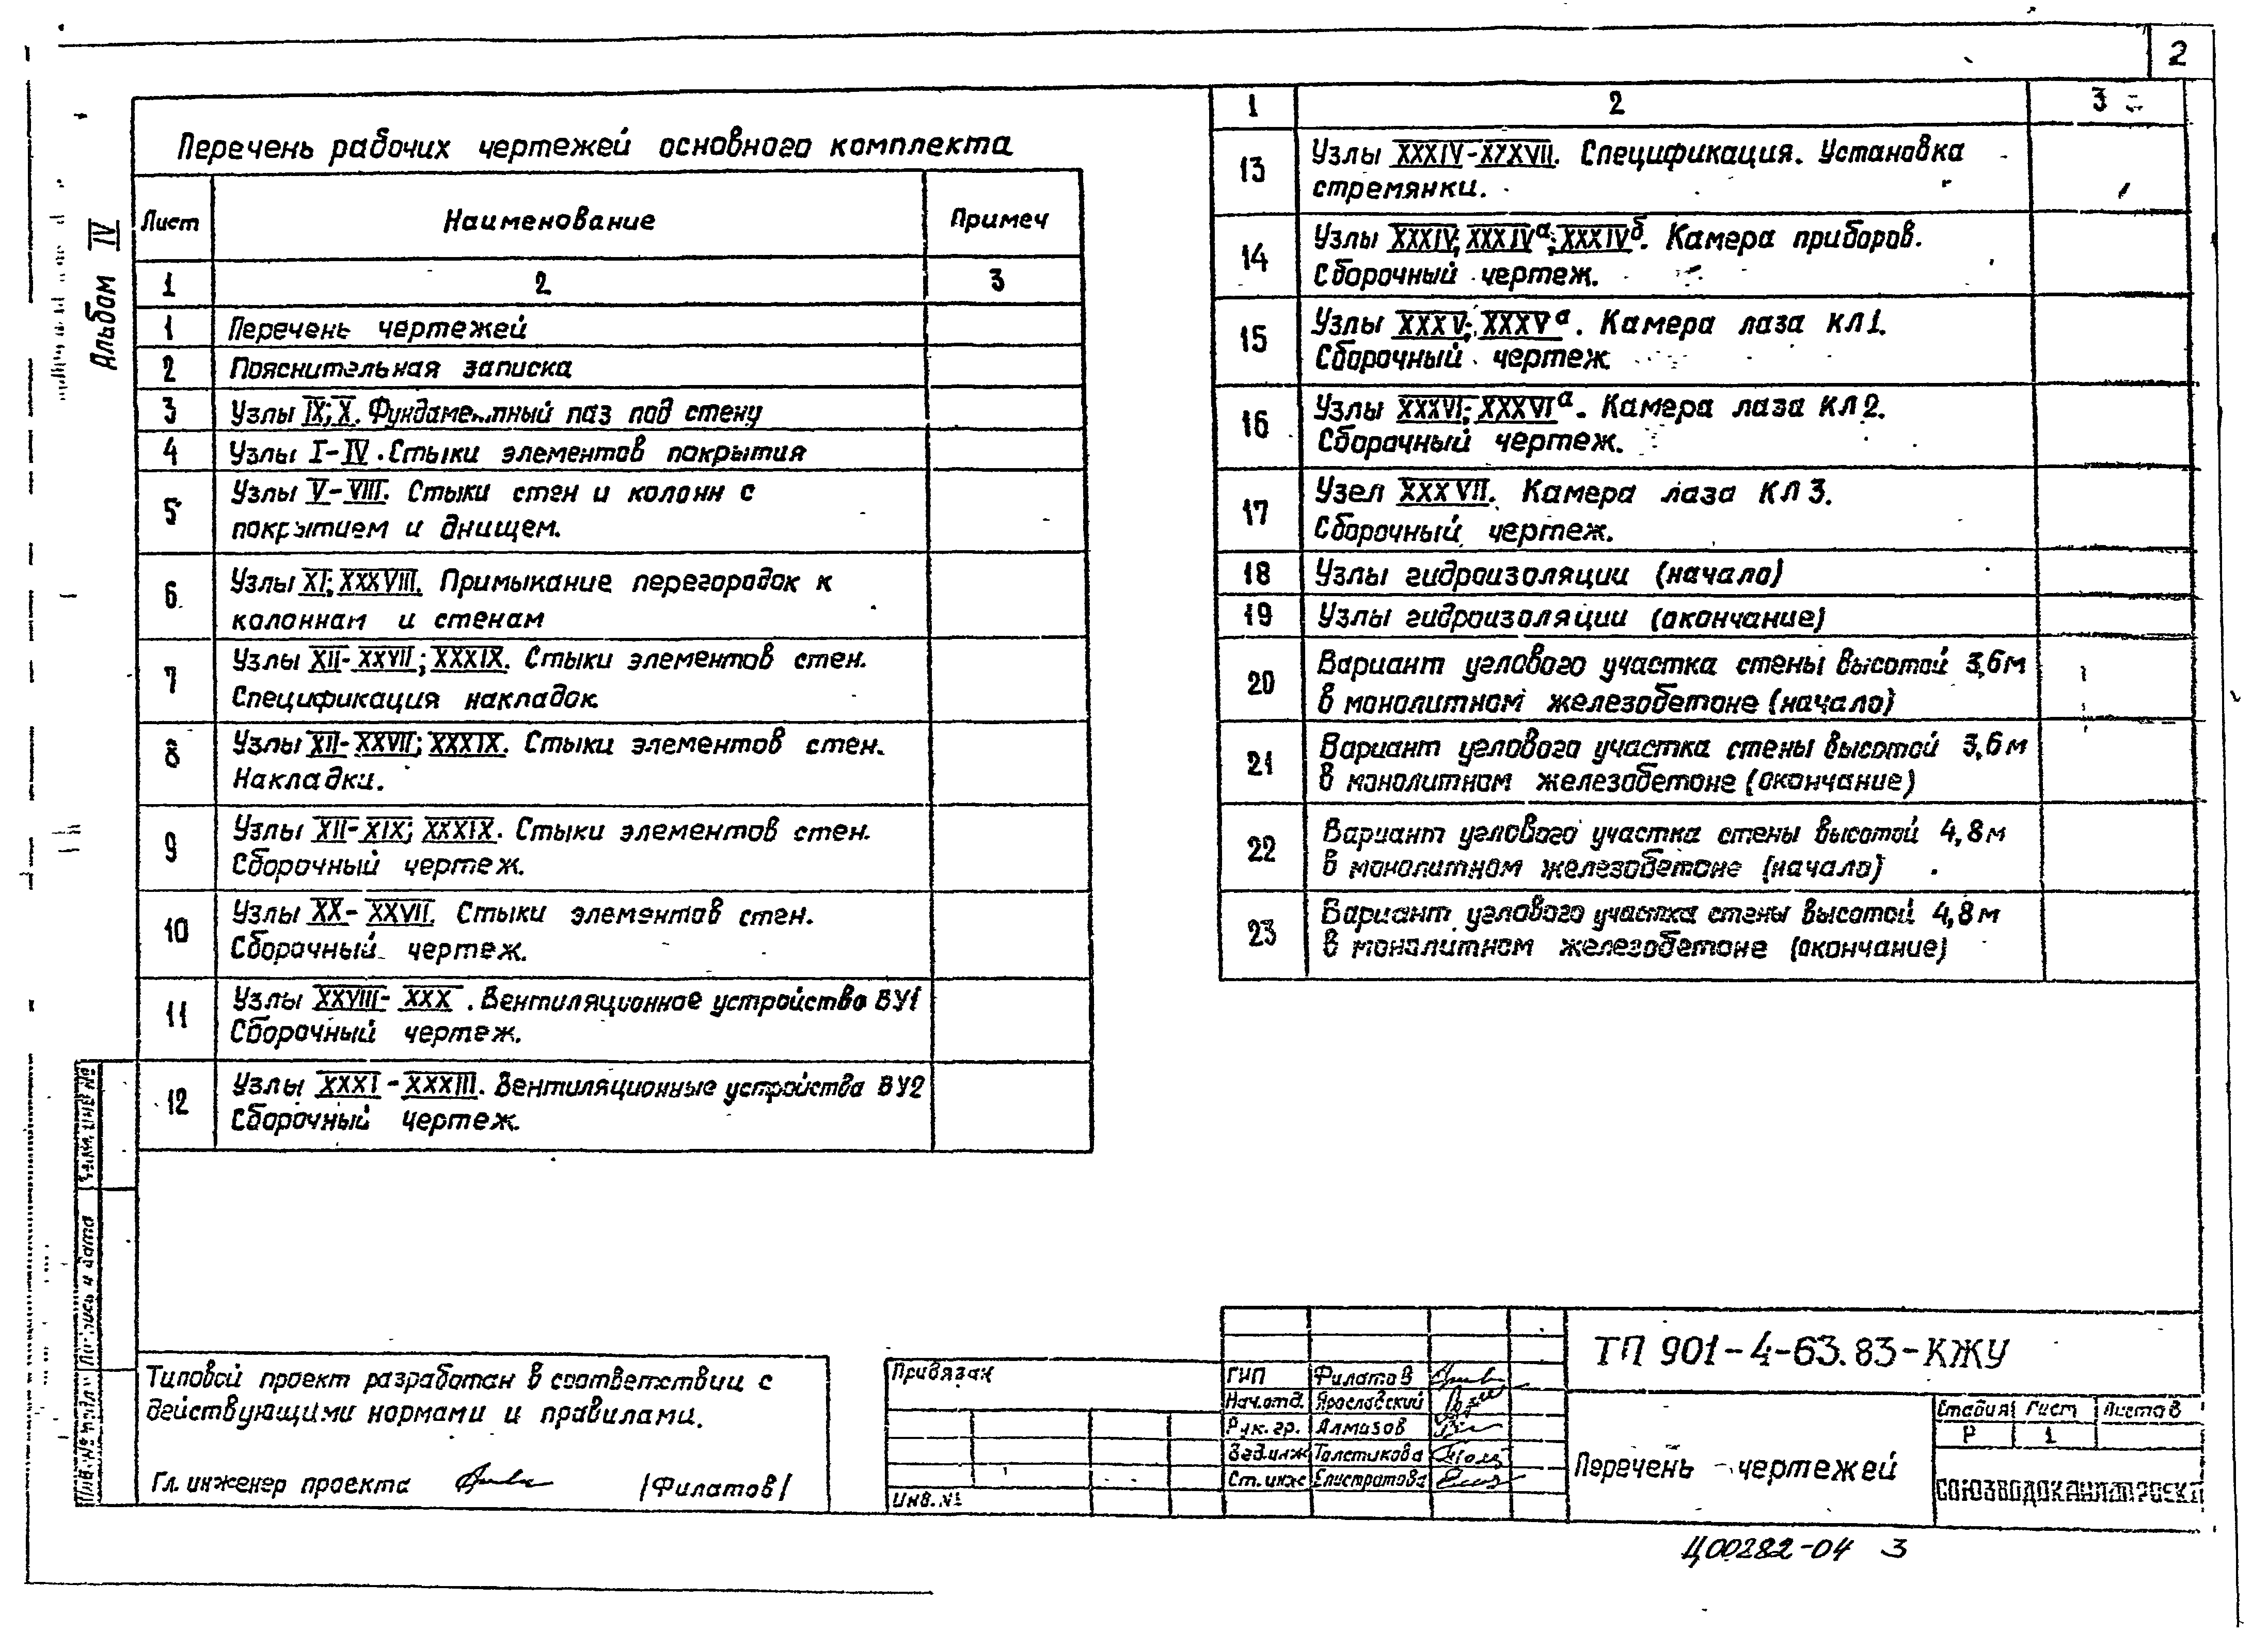 2
Альбом IV
Перечень рабочих чертежей основного комплекта
Лист Наименование Примеч
1 2 3
1 Перечень чертежей
2 Пояснительная записка
3 Узлы IX; X. Фундаментный паз под стену
4 Узлы I-IV. Стыки элементов покрытия
5 Узлы V-VIII. Стыки стен и колонн с
покрытием и днищем.
6 Узлы XI; XXXVIII. Примыкание перегородок к
колоннам и стенам
7 Узлы XII-XXVII; XXXIX. Стыки элементов стен.
Спецификация накладок
8 Узлы XII-XXVII; XXXIX. Стыки элементов стен.
Накладки.
9 Узлы XII-XIX; XXXIX. Стыки элементов стен.
Сборочный чертеж.
10 Узлы XX-XXVII. Стыки элементов стен.
Сборочный чертеж.
11 Узлы XXVIII-XXX. Вентиляционное устройство ВУ1
Сборочный чертеж.
12 Узлы XXXI-XXXIII. Вентиляционные устройства ВУ2
Сборочный чертеж.
1 2 3
13 Узлы XXXIV-XXXVII. Спецификация. Установка
стремянки.
14 Узлы XXXIV; XXXIVа; XXXIVб. Камера приборов.
Сборочный чертеж.
15 Узлы XXXV; XXXVа. Камера лаза КЛ1.
Сборочный чертеж
16 Узлы XXXVI; XXXVIа. Камера лаза КЛ2.
Сборочный чертеж.
17 Узел XXXVII. Камера лаза КЛ3.
Сборочный чертеж.
18 Узлы гидроизоляции (начало)
19 Узлы гидроизоляции (окончание)
20 Вариант углового участка стены высотой 3,6м
в монолитном железобетоне (начало)
21 Вариант углового участка стены высотой 3,6м
в монолитном железобетоне (окончание)
22 Вариант углового участка стены высотой 4,8м
в монолитном железобетоне (начало)
23 Вариант углового участка стены высотой 4,8м
в монолитном железобетоне (окончание)
Типовой проект разработан в соответствии с
действующими нормами и правилами.
Гл. инженер проекта /Филатов/
Привязан
Инв. №
ГИП Филатов
Нач.отд. Ярославский
Рук. гр. Алмазов
Вед.инж Толстикова
Ст. инж Елистратова
ТП 901-4-63.83-КЖУ
Перечень чертежей
Стадия Лист Листов
Р 1
СОЮЗВОДОКАНАЛПРОЕКТ
Инв. № подл. Подпись и дата Взам. инв №
Ц00282-04 3